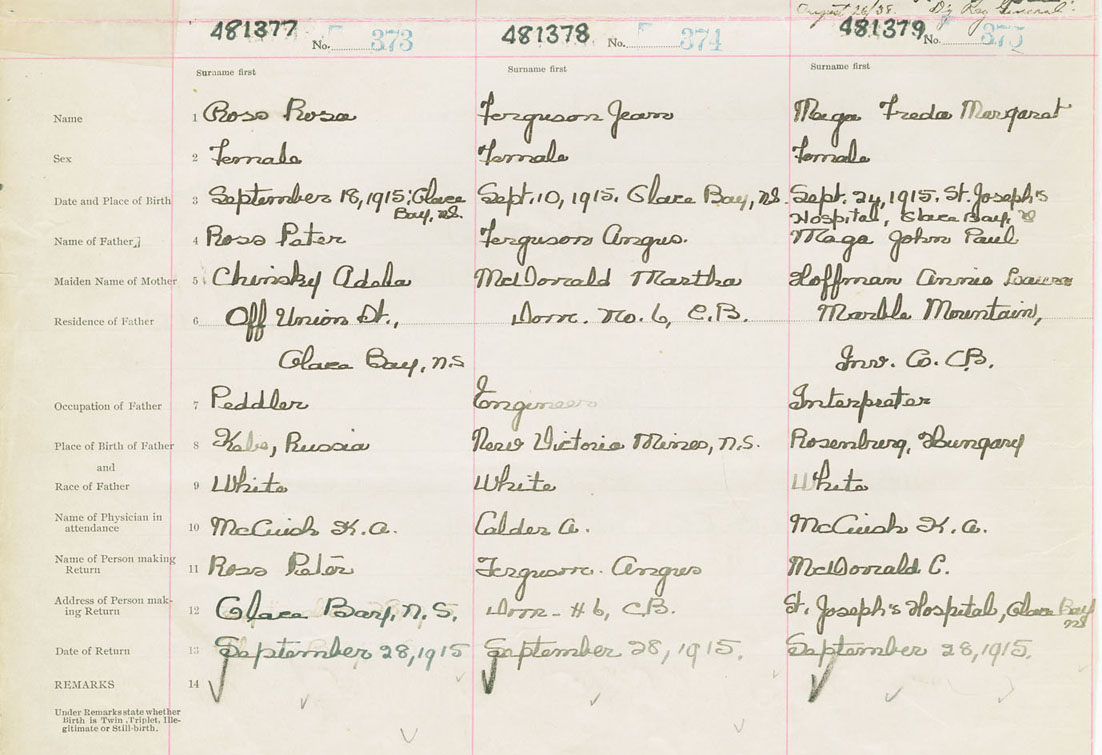 August 26/38. Dy Reg General.
481377 No. 373 481378 No. 374 481379 No. 375
Surname first Surname first Surname first
Name 1 Ross Rosa Ferguson Jean Maga Freda Margaret
Sex 2 Female Female Female
Date and Place of Birth 3 September 18, 1915, Glace Sept. 10, 1915. Glace Bay, NS. Sept. 24, 1915. St. Joseph's
Bay, NS. Hospital, Glace Bay, NS
Name of Father 4 Ross Peter Ferguson Angus. Maga John Paul
Maiden Name of Mother 5 Chinsky Adela McDonald Martha Hoffman Annie Laura
Residence of Father 6 Off Union St., Dom. No. 6, C.B. Marble Mountain,
Glace Bay, NS Inv. Co. C.B.
Occupation of Father 7 Peddler Engineer Interpreter
Place of Birth of Father 8 Russia New Victoria Mines, N.S. Rosenburg, Hungary
and
Race of Father 9 White White White
Name of Physician in
attendance 10 McCuish K. A. Calder A. McCuish K. A.
Name of Person making
Return 11 Ross Peter Ferguson. Angus McDonald C.
Address of Person mak-
ing Return 12 Glace Bay, N.S. Dom - #6, C.B. St. Joseph's Hospital, Glace Bay
NS
Date of Return 13 September 28, 1915 September 28, 1915. September 28, 1915.
REMARKS 14
Under Remarks state whether
Birth is Twin, Triplet, Ille-
gitimate or Still-birth.